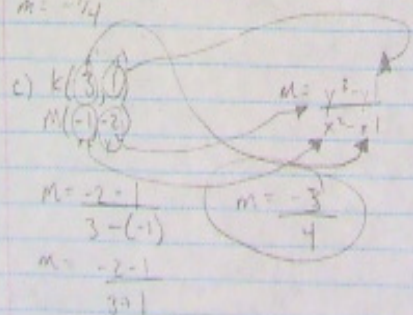 m = -1/4
c) K(3, 1)
M(-1, -2)
m = y² - y1 / x² - x1
m = -2 - 1 / 3 - (-1)
m = -3 / 4
m = -2 - 1 / 3 + 1